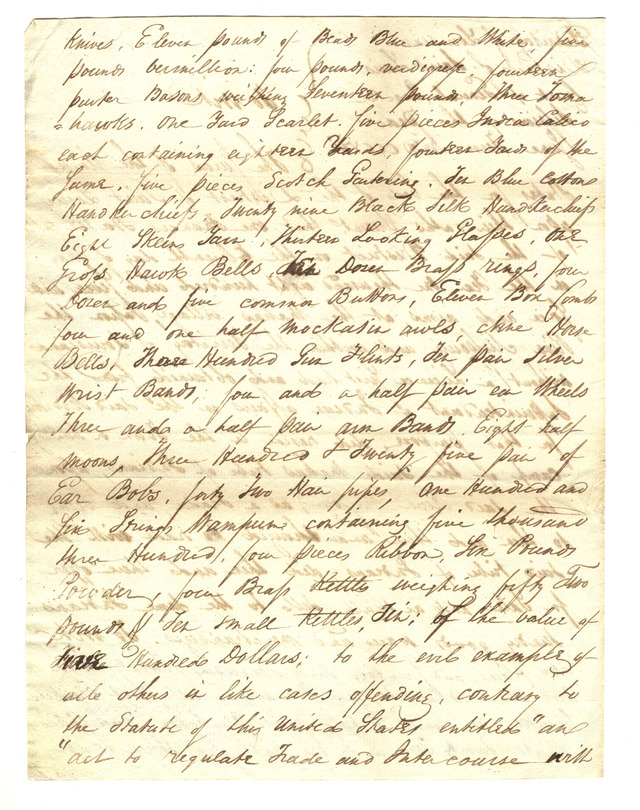 Knives, Eleven pounds of Beads Blue and White, five
pounds vermillion: four pounds, verdigrese, fourteen
pewter Basons weighing Seventeen pounds, three Toma
=hawks. One Yard Scarlet. five pieces India Calico
each containing eighteen Yards, fourteen Yards of the
Same, five pieces Scotch Gartering. Ten Blue Cotton
Handkerchiefs, Twenty nine Black Silk Handkerchiefs
Eight Skeins Yarn, Thirteen Looking Glasses, One
Gross Hawk Bells, Ten Dozen Brass rings, four
Dozen and five common Buttons, Eleven Box Combs
four and one half mockasin awls, nine Horse
Bells, Three Hundred Gun Flints, Ten pair Silver
Wrist Bands; four and a half pair ear Wheels
Three and a half pair arm Bands Eight half
moons, Three Hundred & Twenty five pair of
Ear Bobs, forty Two Hair pipes, One Hundred and
Six Strings Wampum containing five thousand
three Hundred, four pieces Ribbon, Six Pounds
Powder, four Brass Kettles weighing fifty Two
pounds & Ten small Kettles, Tin; of the value of
Hundred Dollars; to the evil example of
all others in like cases offending, contrary to
the Statute of this United States entitled "an
"act to regulate Trade and Intercourse with